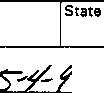 State
5-4-9